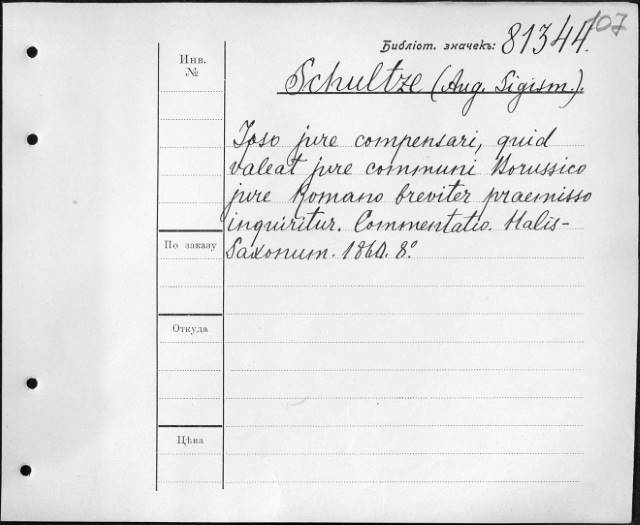 107
Библіот. значекъ: 81344.
Инв.
№
Schultze (Aug. Sigism.).
Ipso jure compensari, quid
valeat jure communi Borussico
jure Romano breviter praemisso
inquiritur. Commentatio. Halis-
Saxonum. 1860. 8.º
По заказу
Откуда
Цѣна